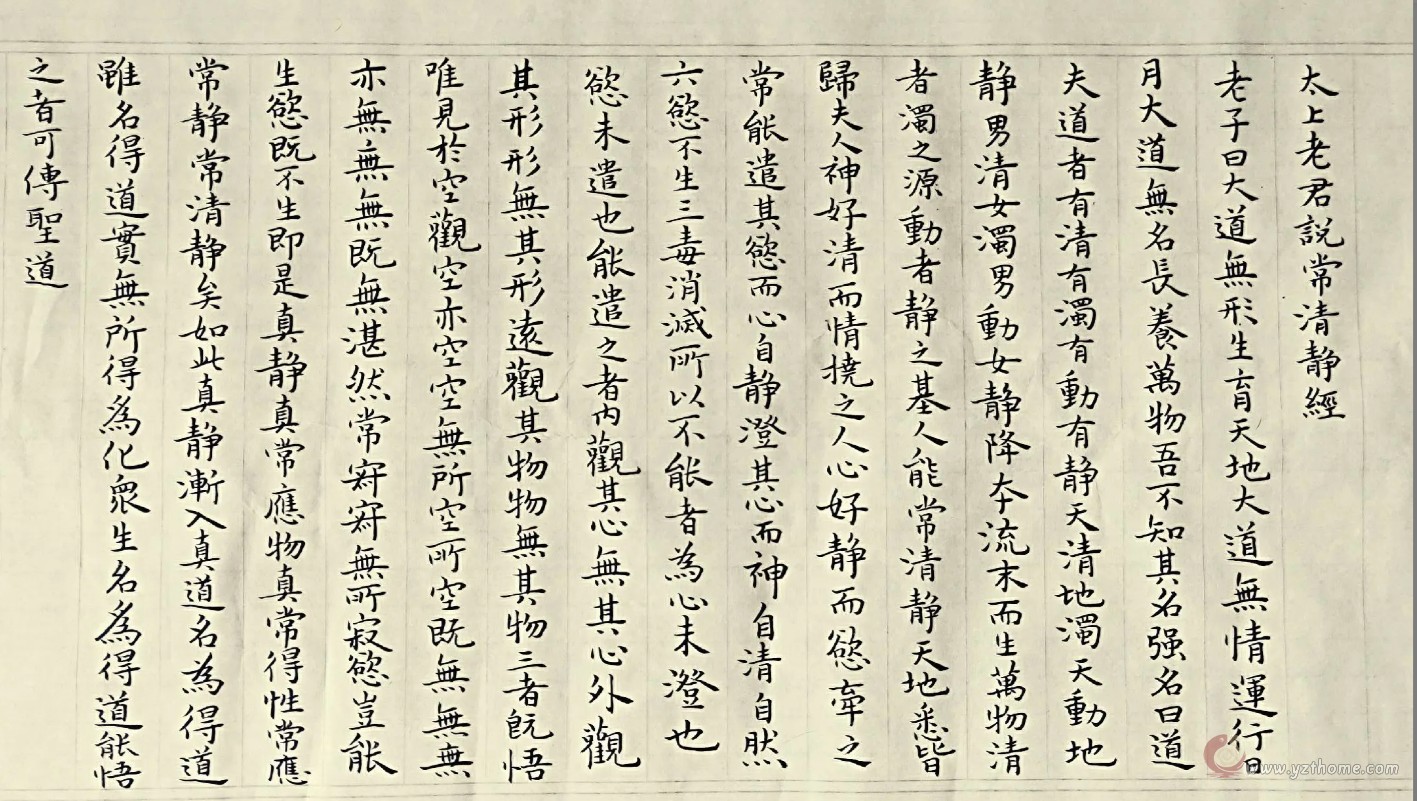 太上老君說常清静經
老子曰大道無形生育天地大道無情運行日
月大道無名長養萬物吾不知其名强名曰道
夫道者有清有濁有動有静天清地濁天動地
静男清女濁男動女静降夲流末而生萬物清
者濁之源動者静之基人能常清静天地悉皆
歸夫人神好清而情撓之人心好静而慾牽之
常能遣其慾而心自静澄其心而神自清自然
六慾不生三毒消滅所以不能者為心未澄也
慾未遣也能遣之者内觀其心無其心外觀
其形形無其形遠觀其物物無其物三者既悟
唯見於空觀空亦空空無所空所空既無無無
亦無無無既無湛然常寂寂無所寂慾豈能
生慾既不生即是真静真常應物真常得性常應
常静常清静矣如此真静漸入真道名為得道
雖名得道實無所得為化衆生名為得道能悟
之者可傳聖道
www.yzthome.com